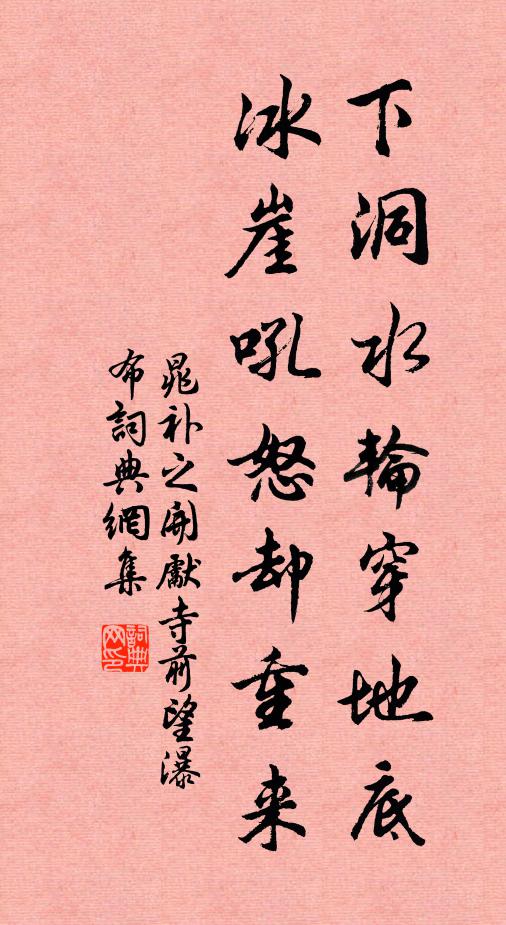 下洞水輪穿地底
冰崖吼怒却重来
晁补之開獻寺前望瀑
布詞典網集
詞典网印